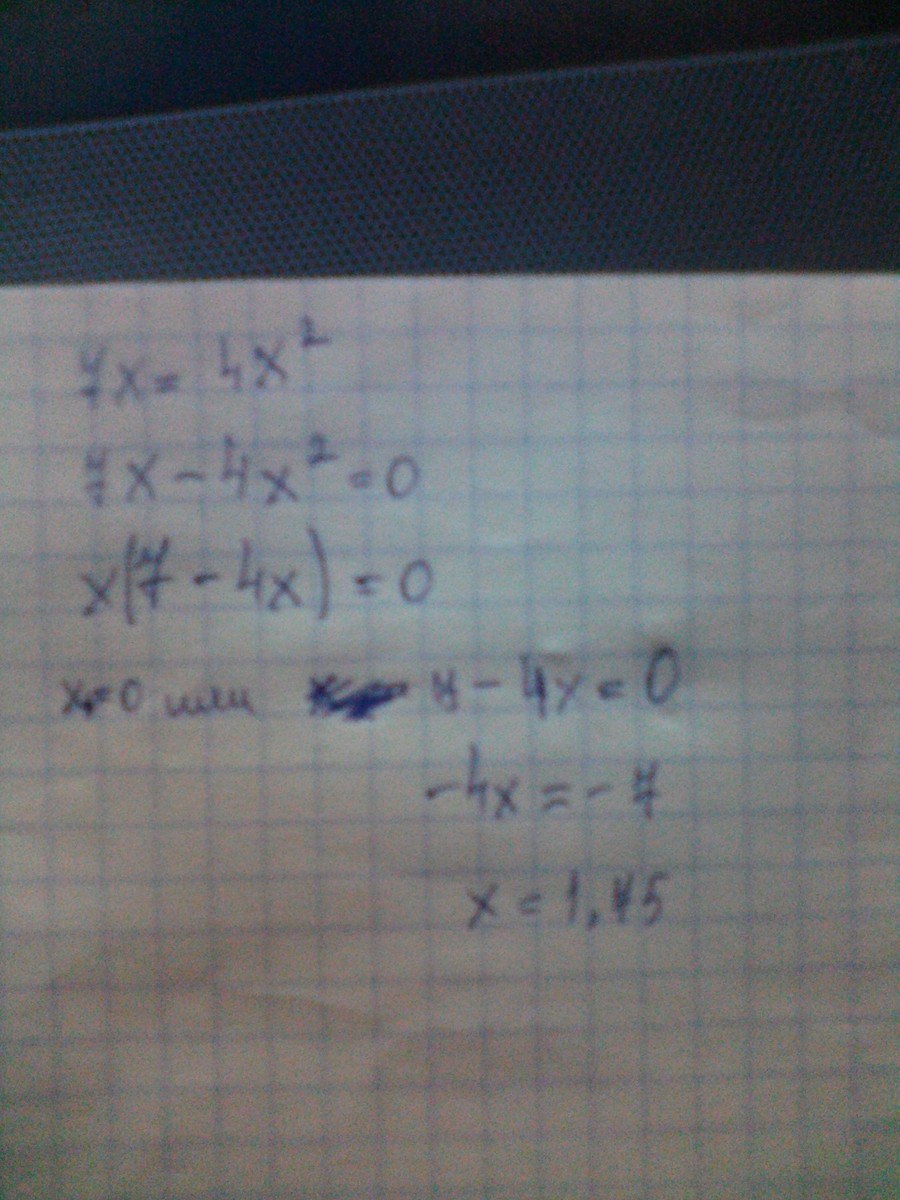 7x = 4x²
7x - 4x² = 0
x(7 - 4x) = 0
x = 0 или 7 - 4x = 0
-4x = -7
x = 1,75